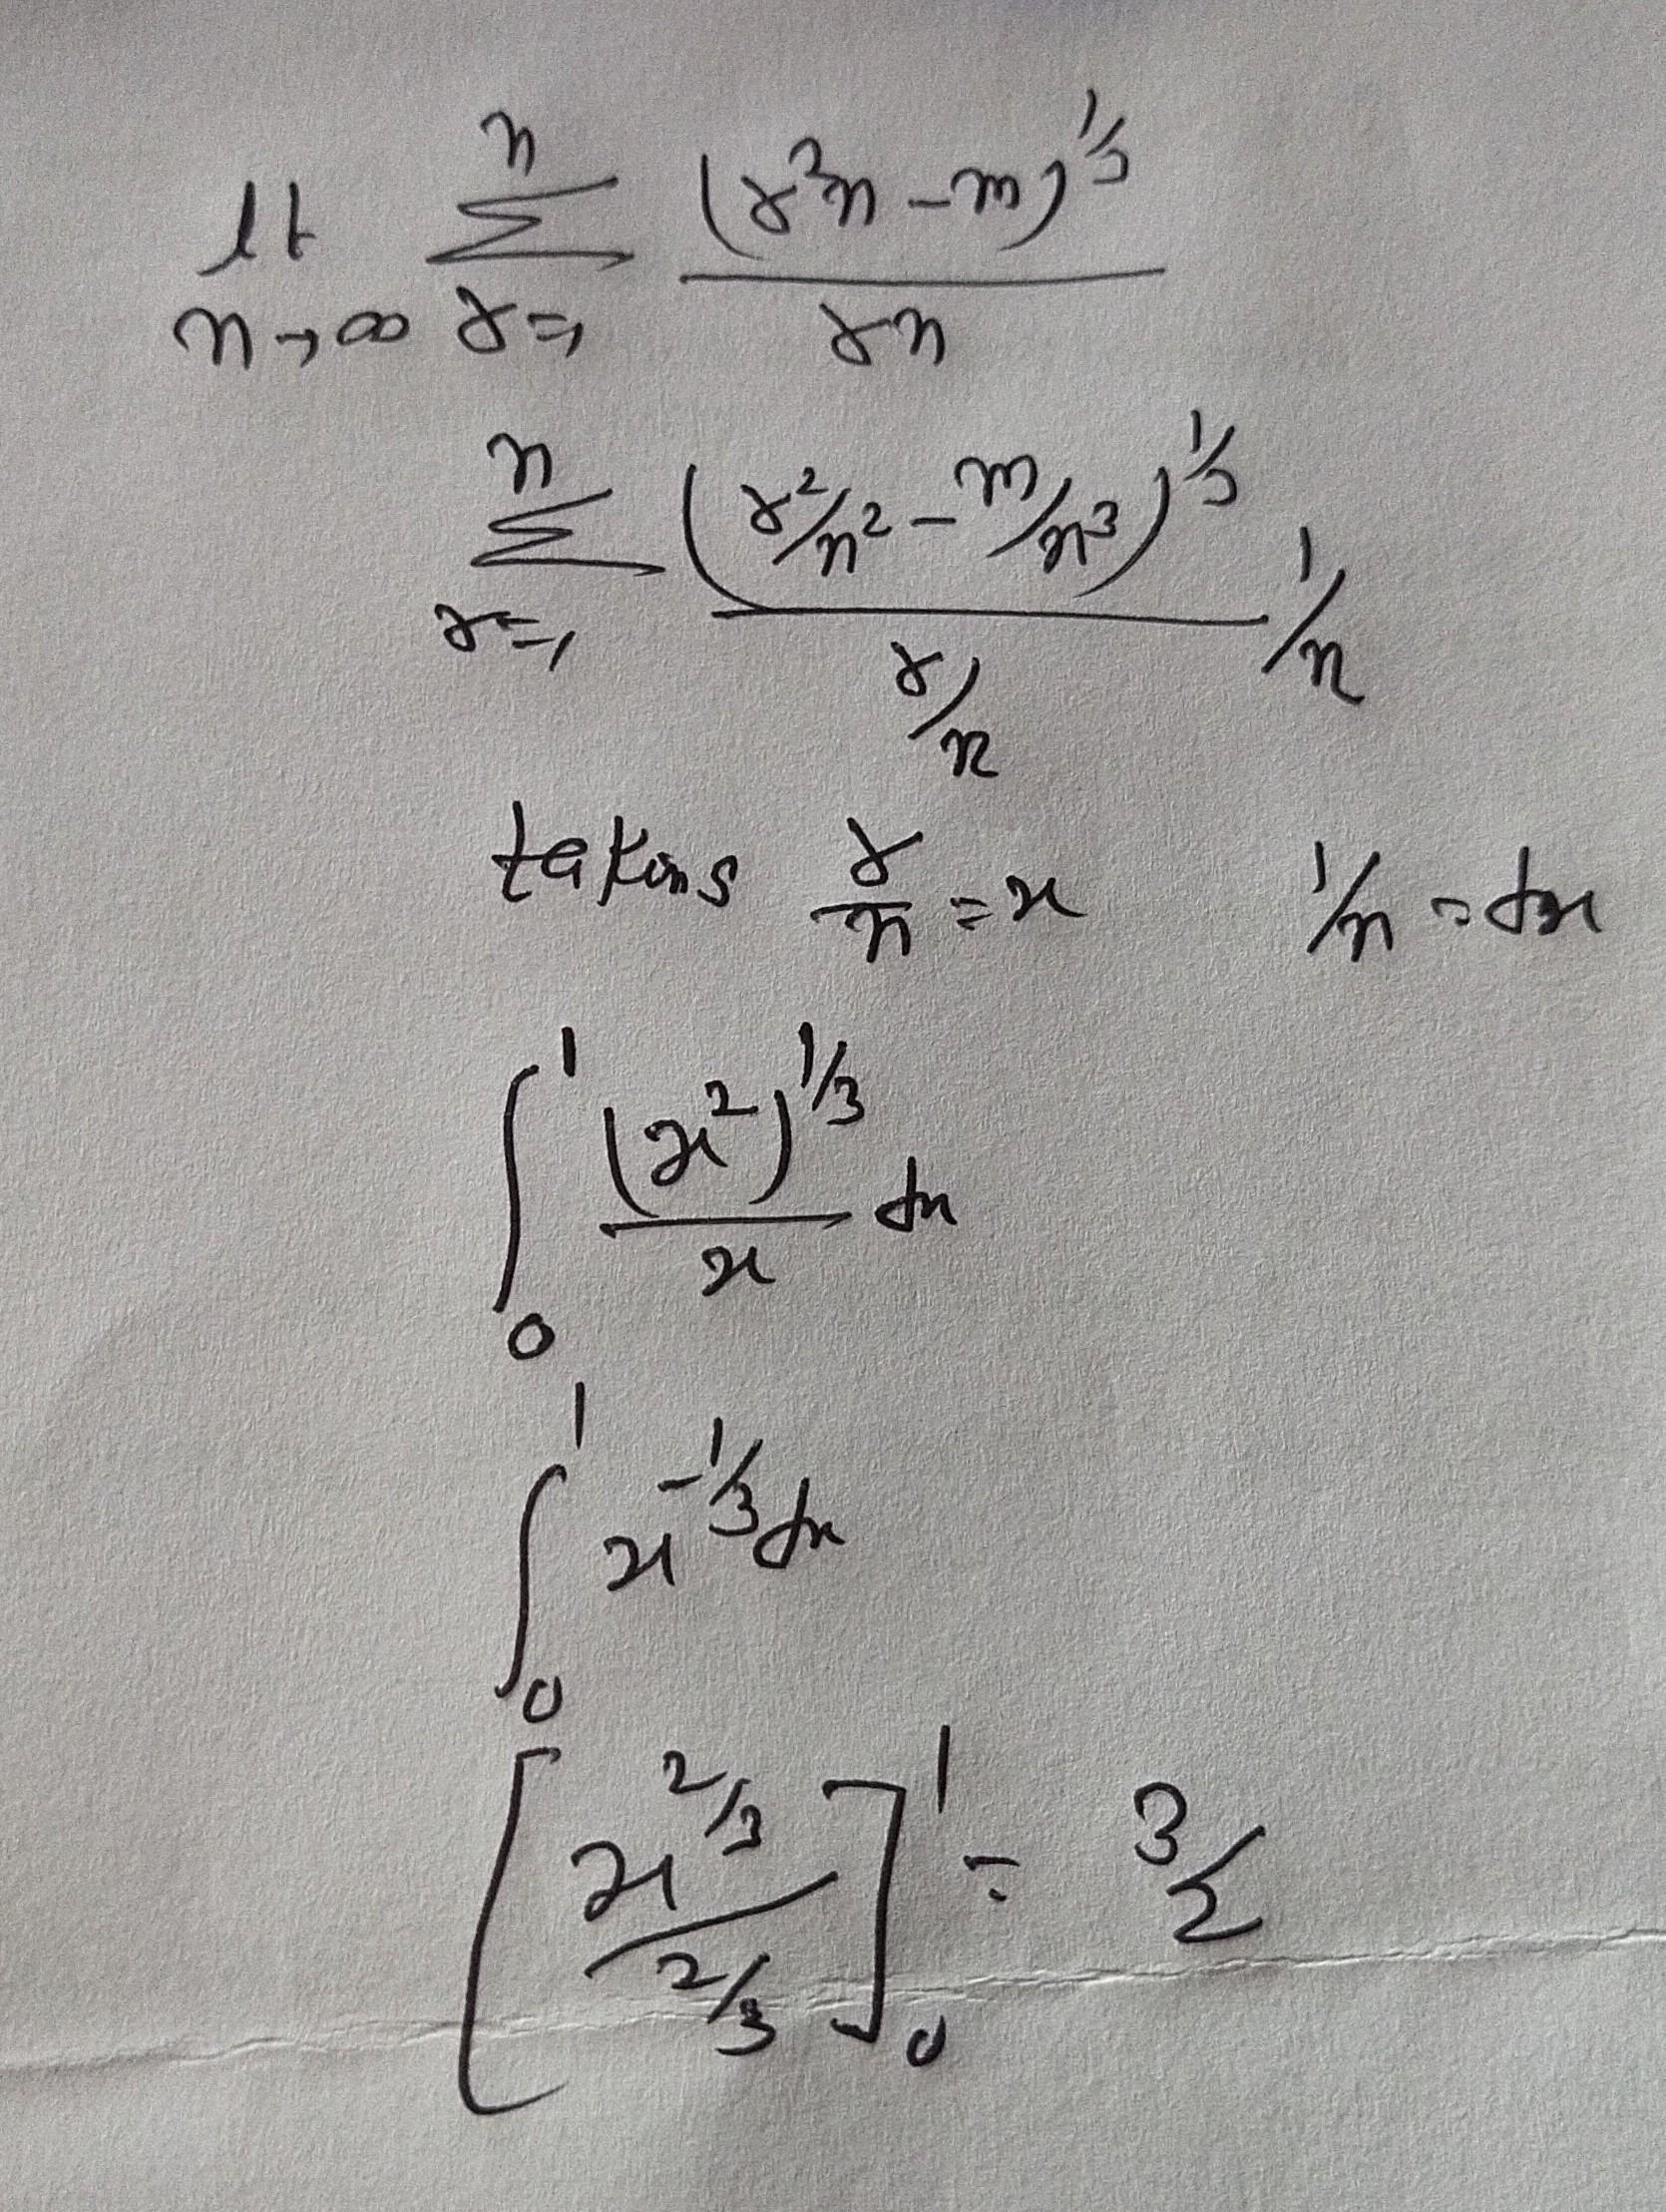 lt n→∞ n Σ r=1 (r²n - m)^1/3 / rn
n Σ r=1 (r²/n² - m/n³)^1/3 / r/n 1/n
taking r/n = x 1/n = dx
∫₀¹ (x²)^1/3 / x dx
∫₀¹ x^-1/3 dx
[x^2/3 / 2/3]₀¹ = 3/2